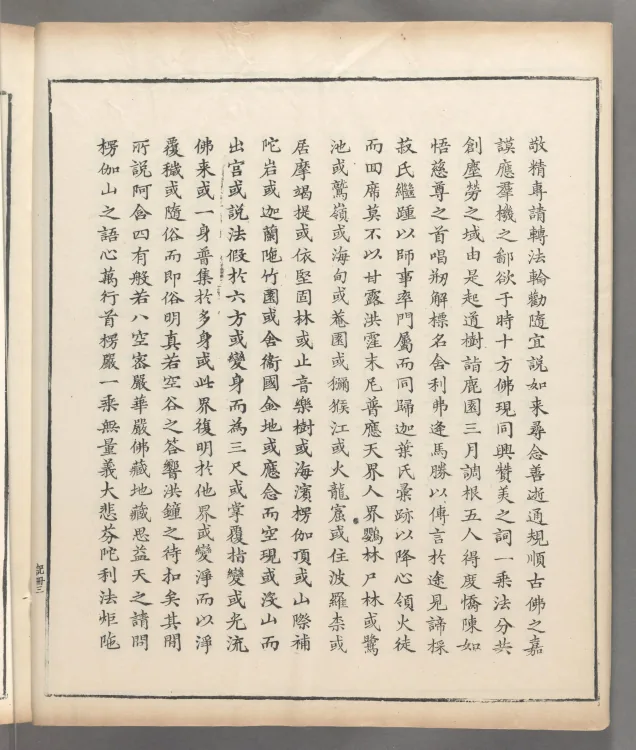 敬精專請轉法輪勸隨宜說如来尋念善逝通規順古佛之嘉
謨應羣機之鄙欲于時十方佛現同興贊美之詞一乗法分共
創塵勞之域由是起道樹詣鹿園三月調根五人得度憍陳如
悟慈尊之首唱剏解標名舎利弗逢馬勝以傳言於途見諦採
菽氏繼踵以師事率門屬而同歸迦葉氏彚跡以降心領火徒
而回席莫不以甘露洪霔末尼普應天界人界鸚林尸林或鷺
池或鷲嶺或海甸或菴園或獼猴江或火龍窟或住波羅柰或
居摩竭提或依堅固林或止音樂樹或海濱楞伽頂或山際補
陀岩或迦蘭陁竹園或舎衞國金地或應念而空現或沒山而
出宫或說法假於六方或變身而為三尺或掌覆指變或光流
佛来或一身普集於多身或此界復明於他界或變淨而以淨
覆穢或隨俗而即俗明真若空谷之荅響洪鐘之待扣矣其間
所說阿含四有般若八空宻嚴華嚴佛藏地藏思益天之請問
楞伽山之語心萬行首楞嚴一乗無量義大悲芬陀利法炬陁
記冊三